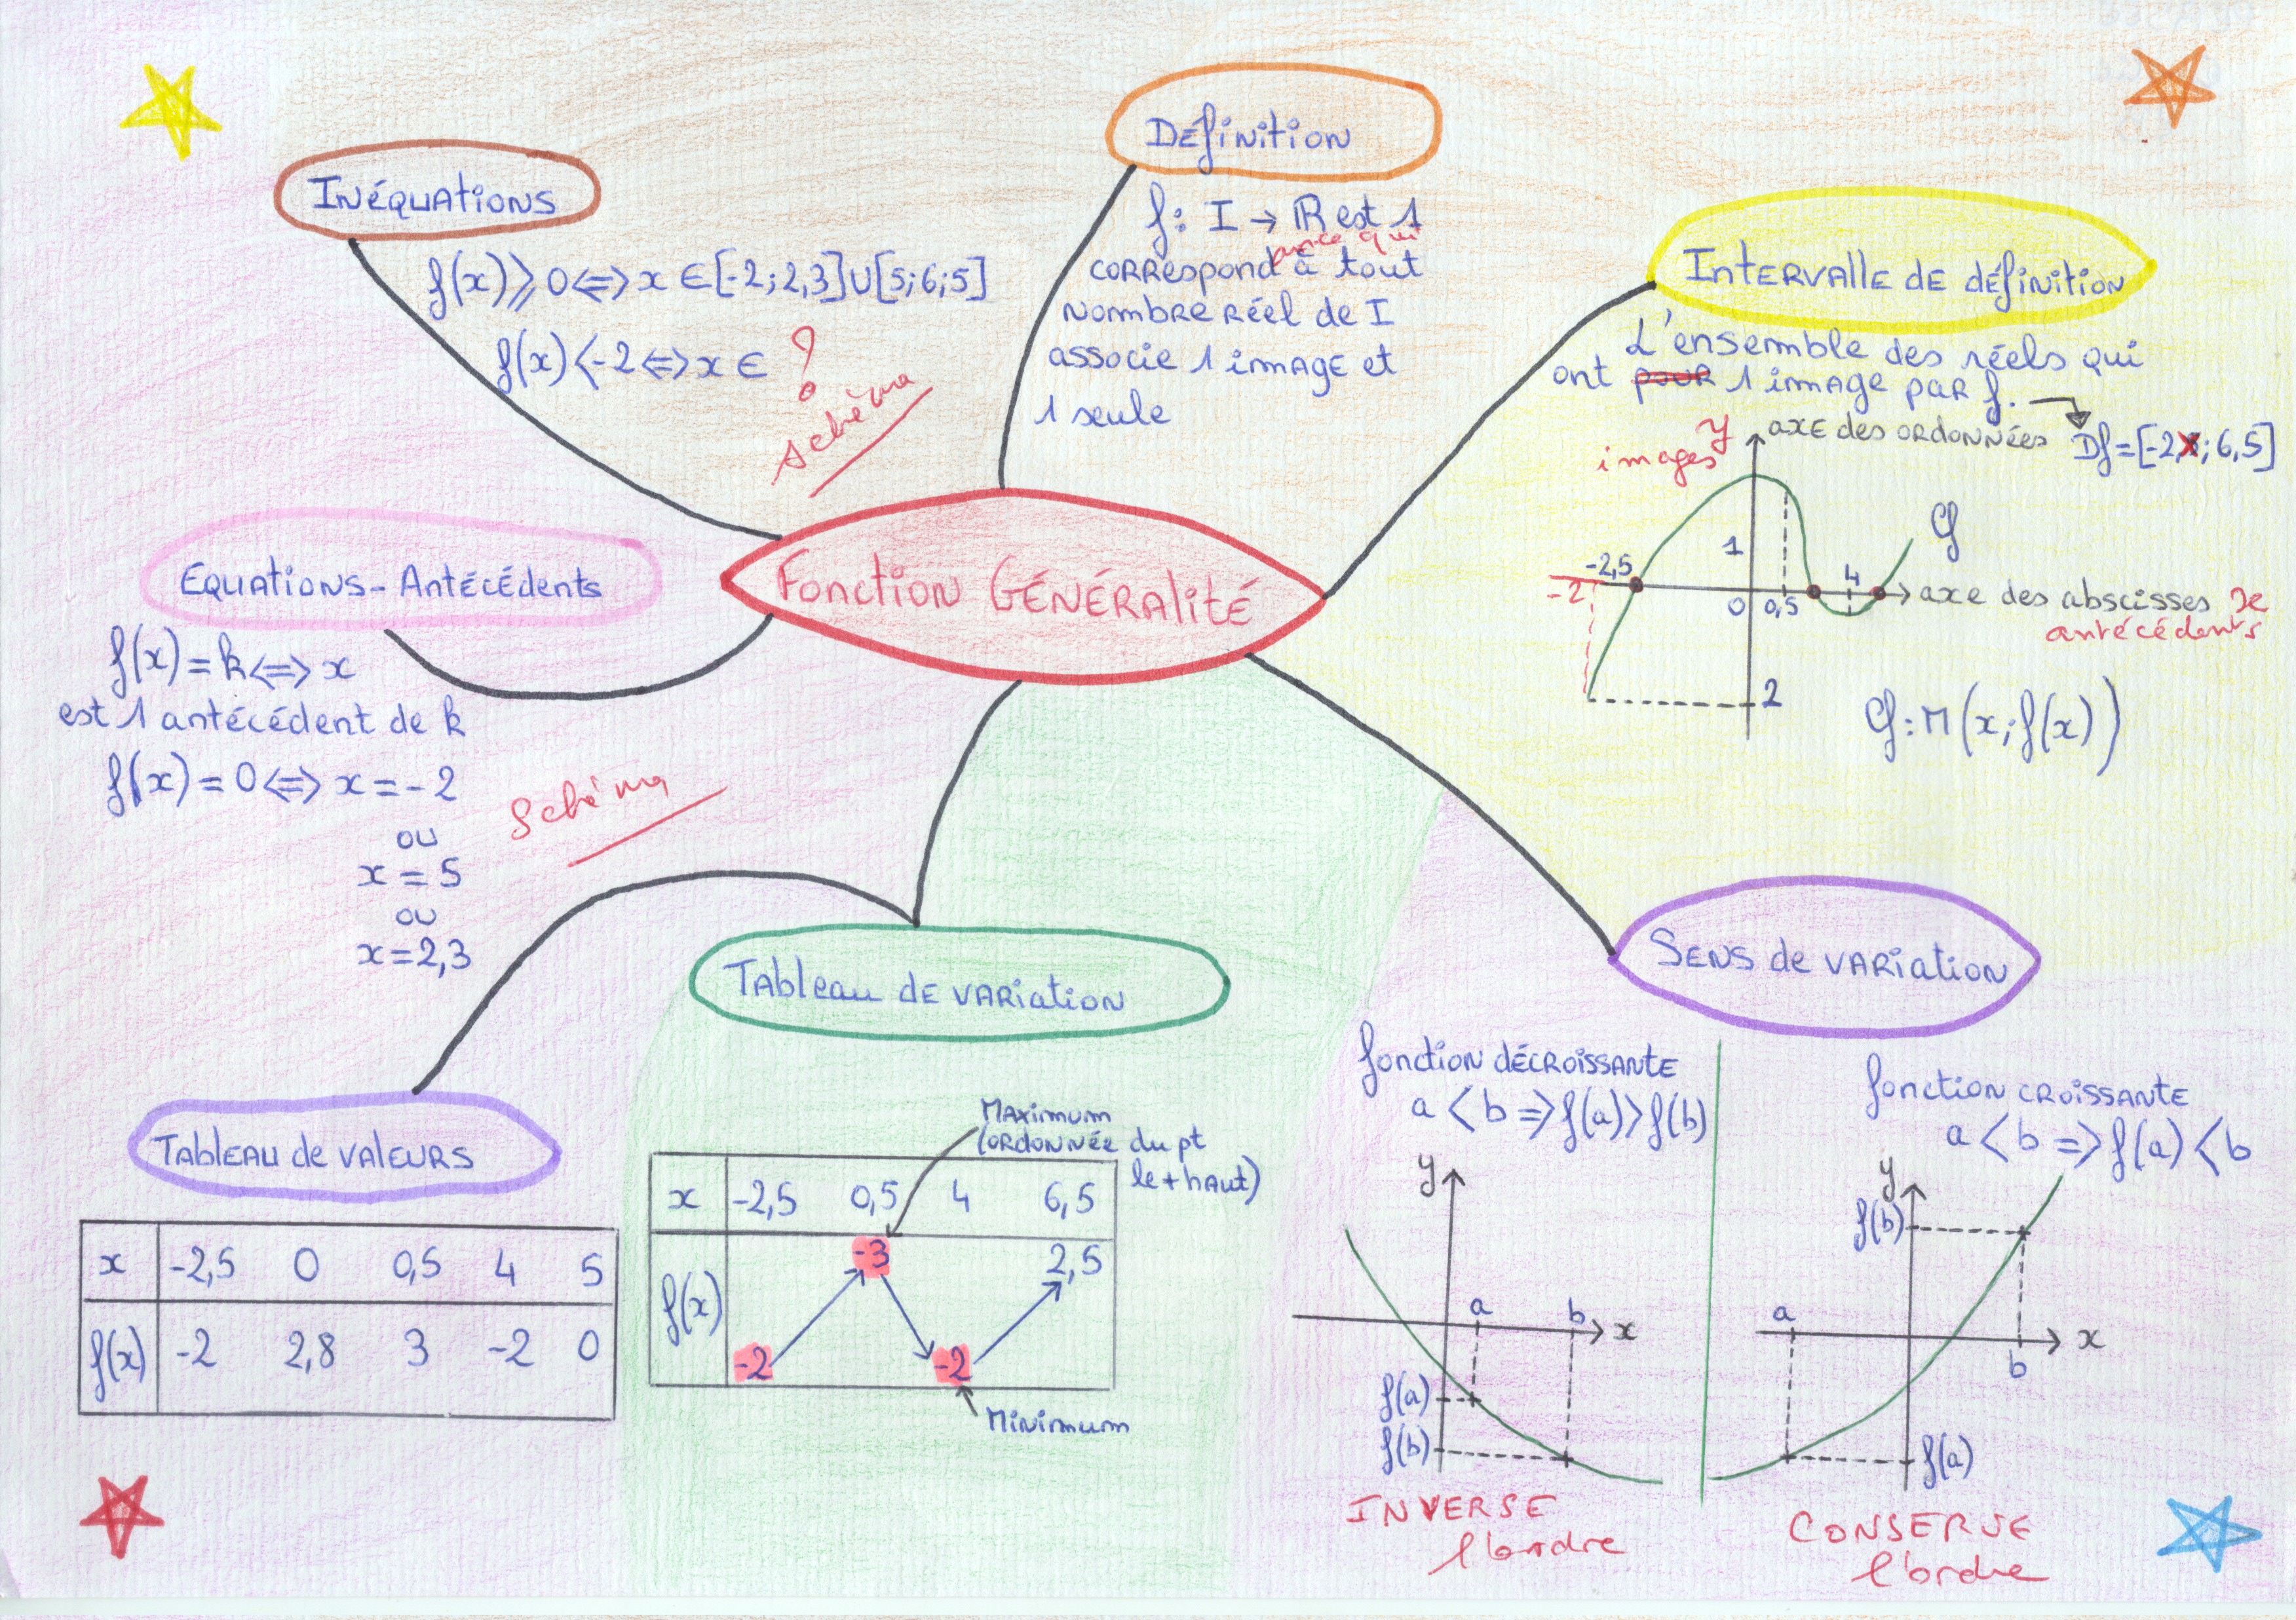 Fonction Généralité
Définition
f: I → ℝ est 1
avec qui
correspond à tout
nombre réel de I
associe 1 image et
1 seule
Intervalle de définition
L'ensemble des réels qui
ont pour 1 image par f.
Df=[-2,5; 6,5]
images y axe des ordonnées
Cf
1
-2,5
-2
4
0 0,5
axe des abscisses x
antécédents
2
Cf: M(x; f(x))
Sens de variation
fonction décroissante
a < b => f(a) > f(b)
y
a b x
f(a)
f(b)
INVERSE
l'ordre
fonction croissante
a < b => f(a) < b
y
f(b)
a
b
x
f(a)
CONSERVE
l'ordre
Tableau de variation
Maximum
(ordonnée du pt
le + haut)
x -2,5 0,5 4 6,5
f(x) -2 -3 -2 2,5
Minimum
Tableau de valeurs
x -2,5 0 0,5 4 5
f(x) -2 2,8 3 -2 0
Equations - Antécédents
f(x) = k <=> x
est 1 antécédent de k
f(x) = 0 <=> x = -2
ou
x = 5
ou
x = 2,3
Schéma
Inéquations
f(x) ⩾ 0 <=> x ∈ [-2; 2,3] ∪ [5; 6;5]
f(x) < -2 <=> x ∈ ?
schéma